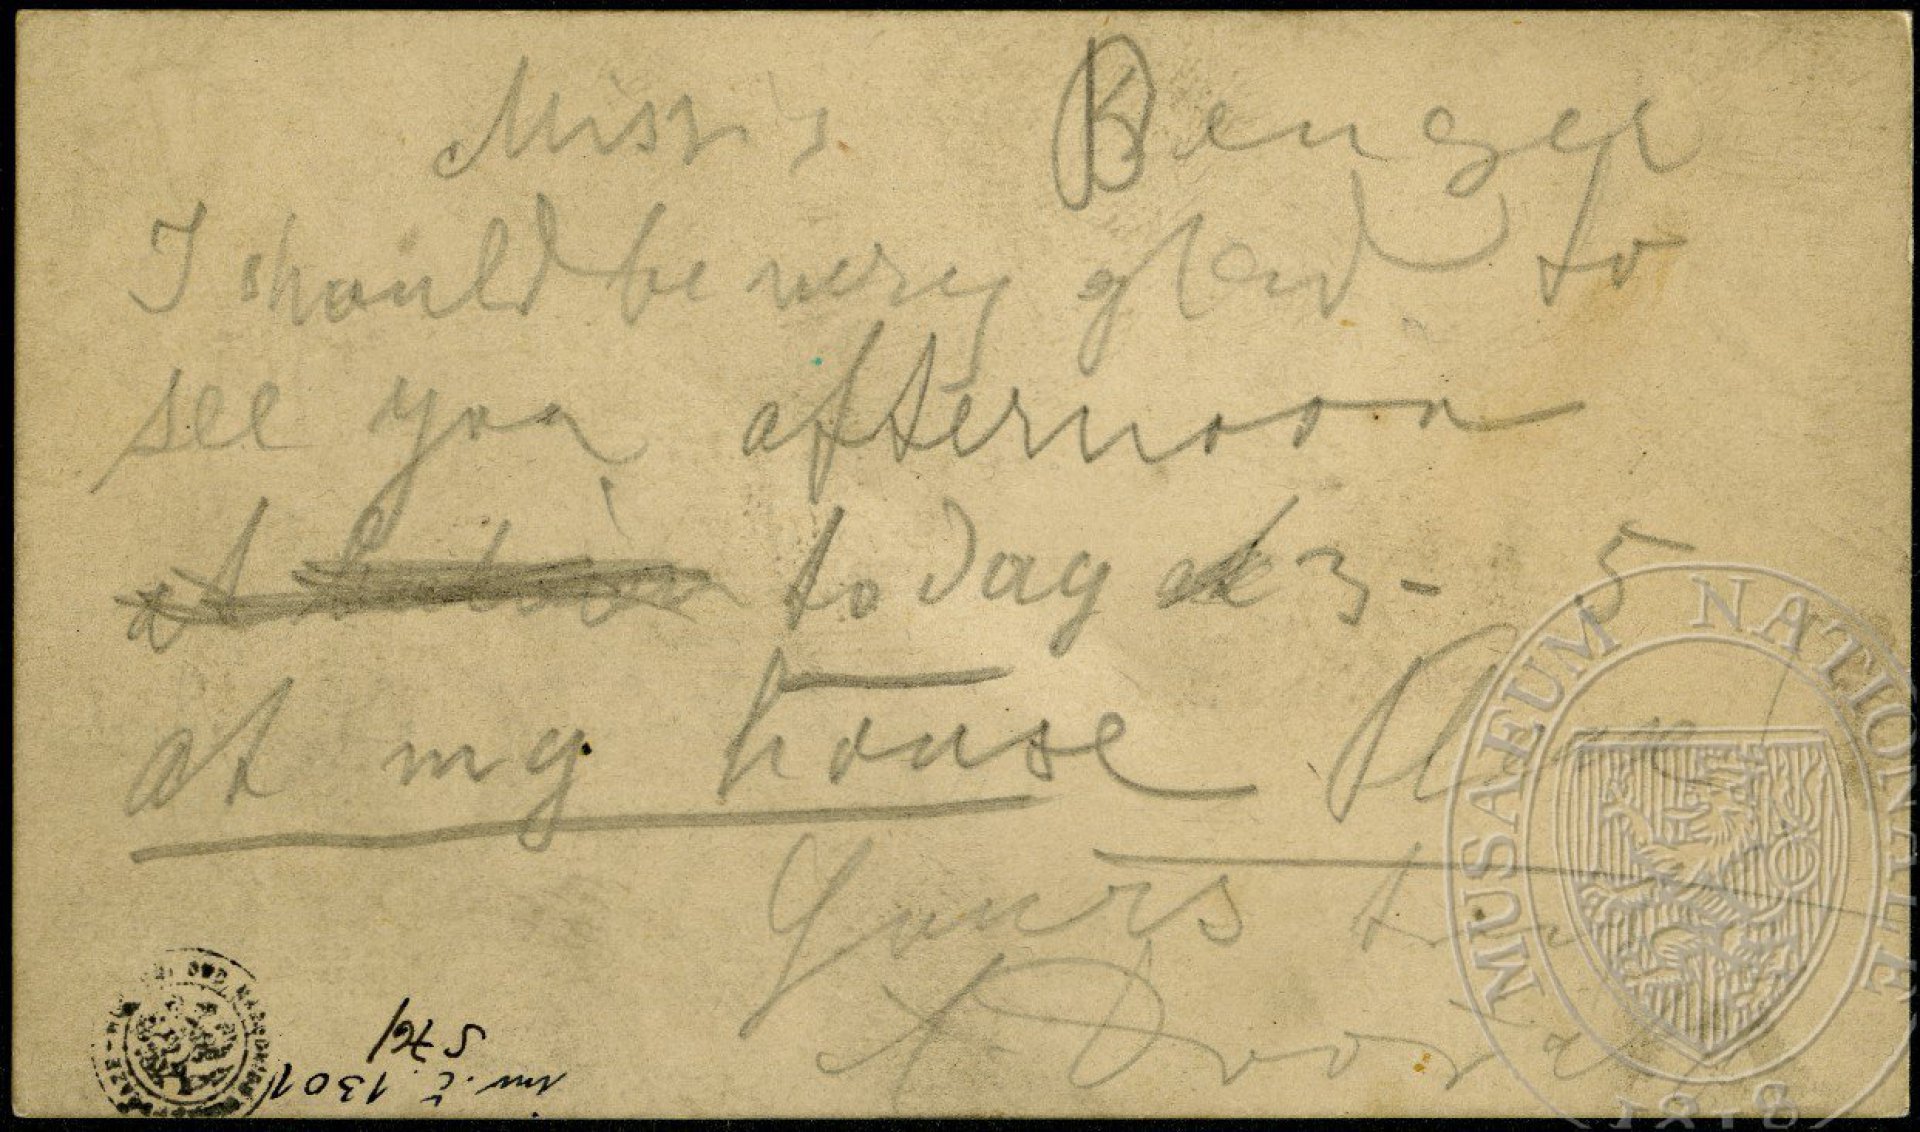 Miss's Benger
I should be very glad to
see you afternoon
at to day at 3 - 5
at my house Please
Yours
A. Dvořák
inv. č. 1301
S 76/
MUSAEUM NATIONALE
1818